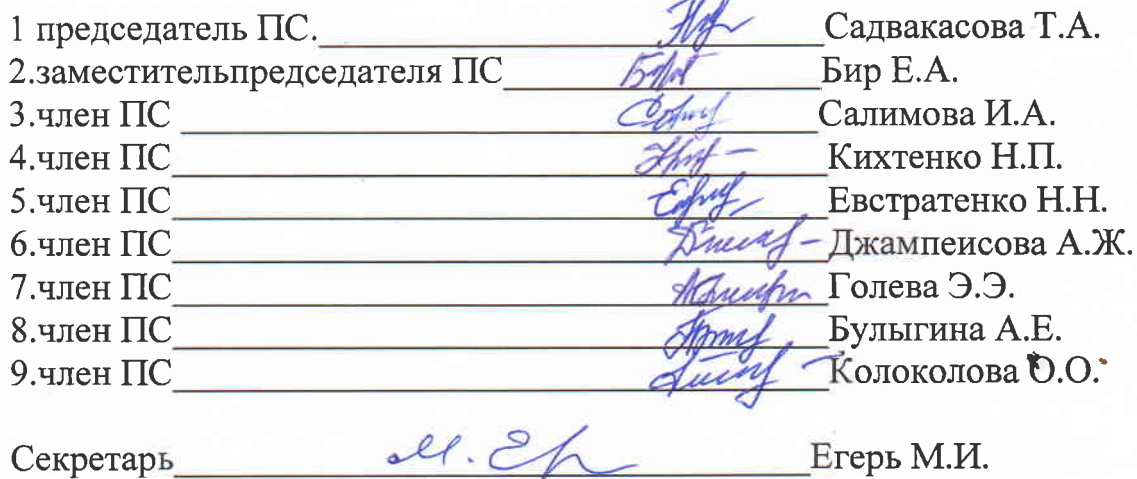 1 председатель ПС.____________Садвакасова Т.А.
2.заместительпредседателя ПС____________Бир Е.А.
3.член ПС ____________Салимова И.А.
4.член ПС____________Кихтенко Н.П.
5.член ПС____________Евстратенко Н.Н.
6.член ПС____________Джампеисова А.Ж.
7.член ПС____________Голева Э.Э.
8.член ПС____________Булыгина А.Е.
9.член ПС____________Колоколова О.О.
Секретарь____________Егерь М.И.